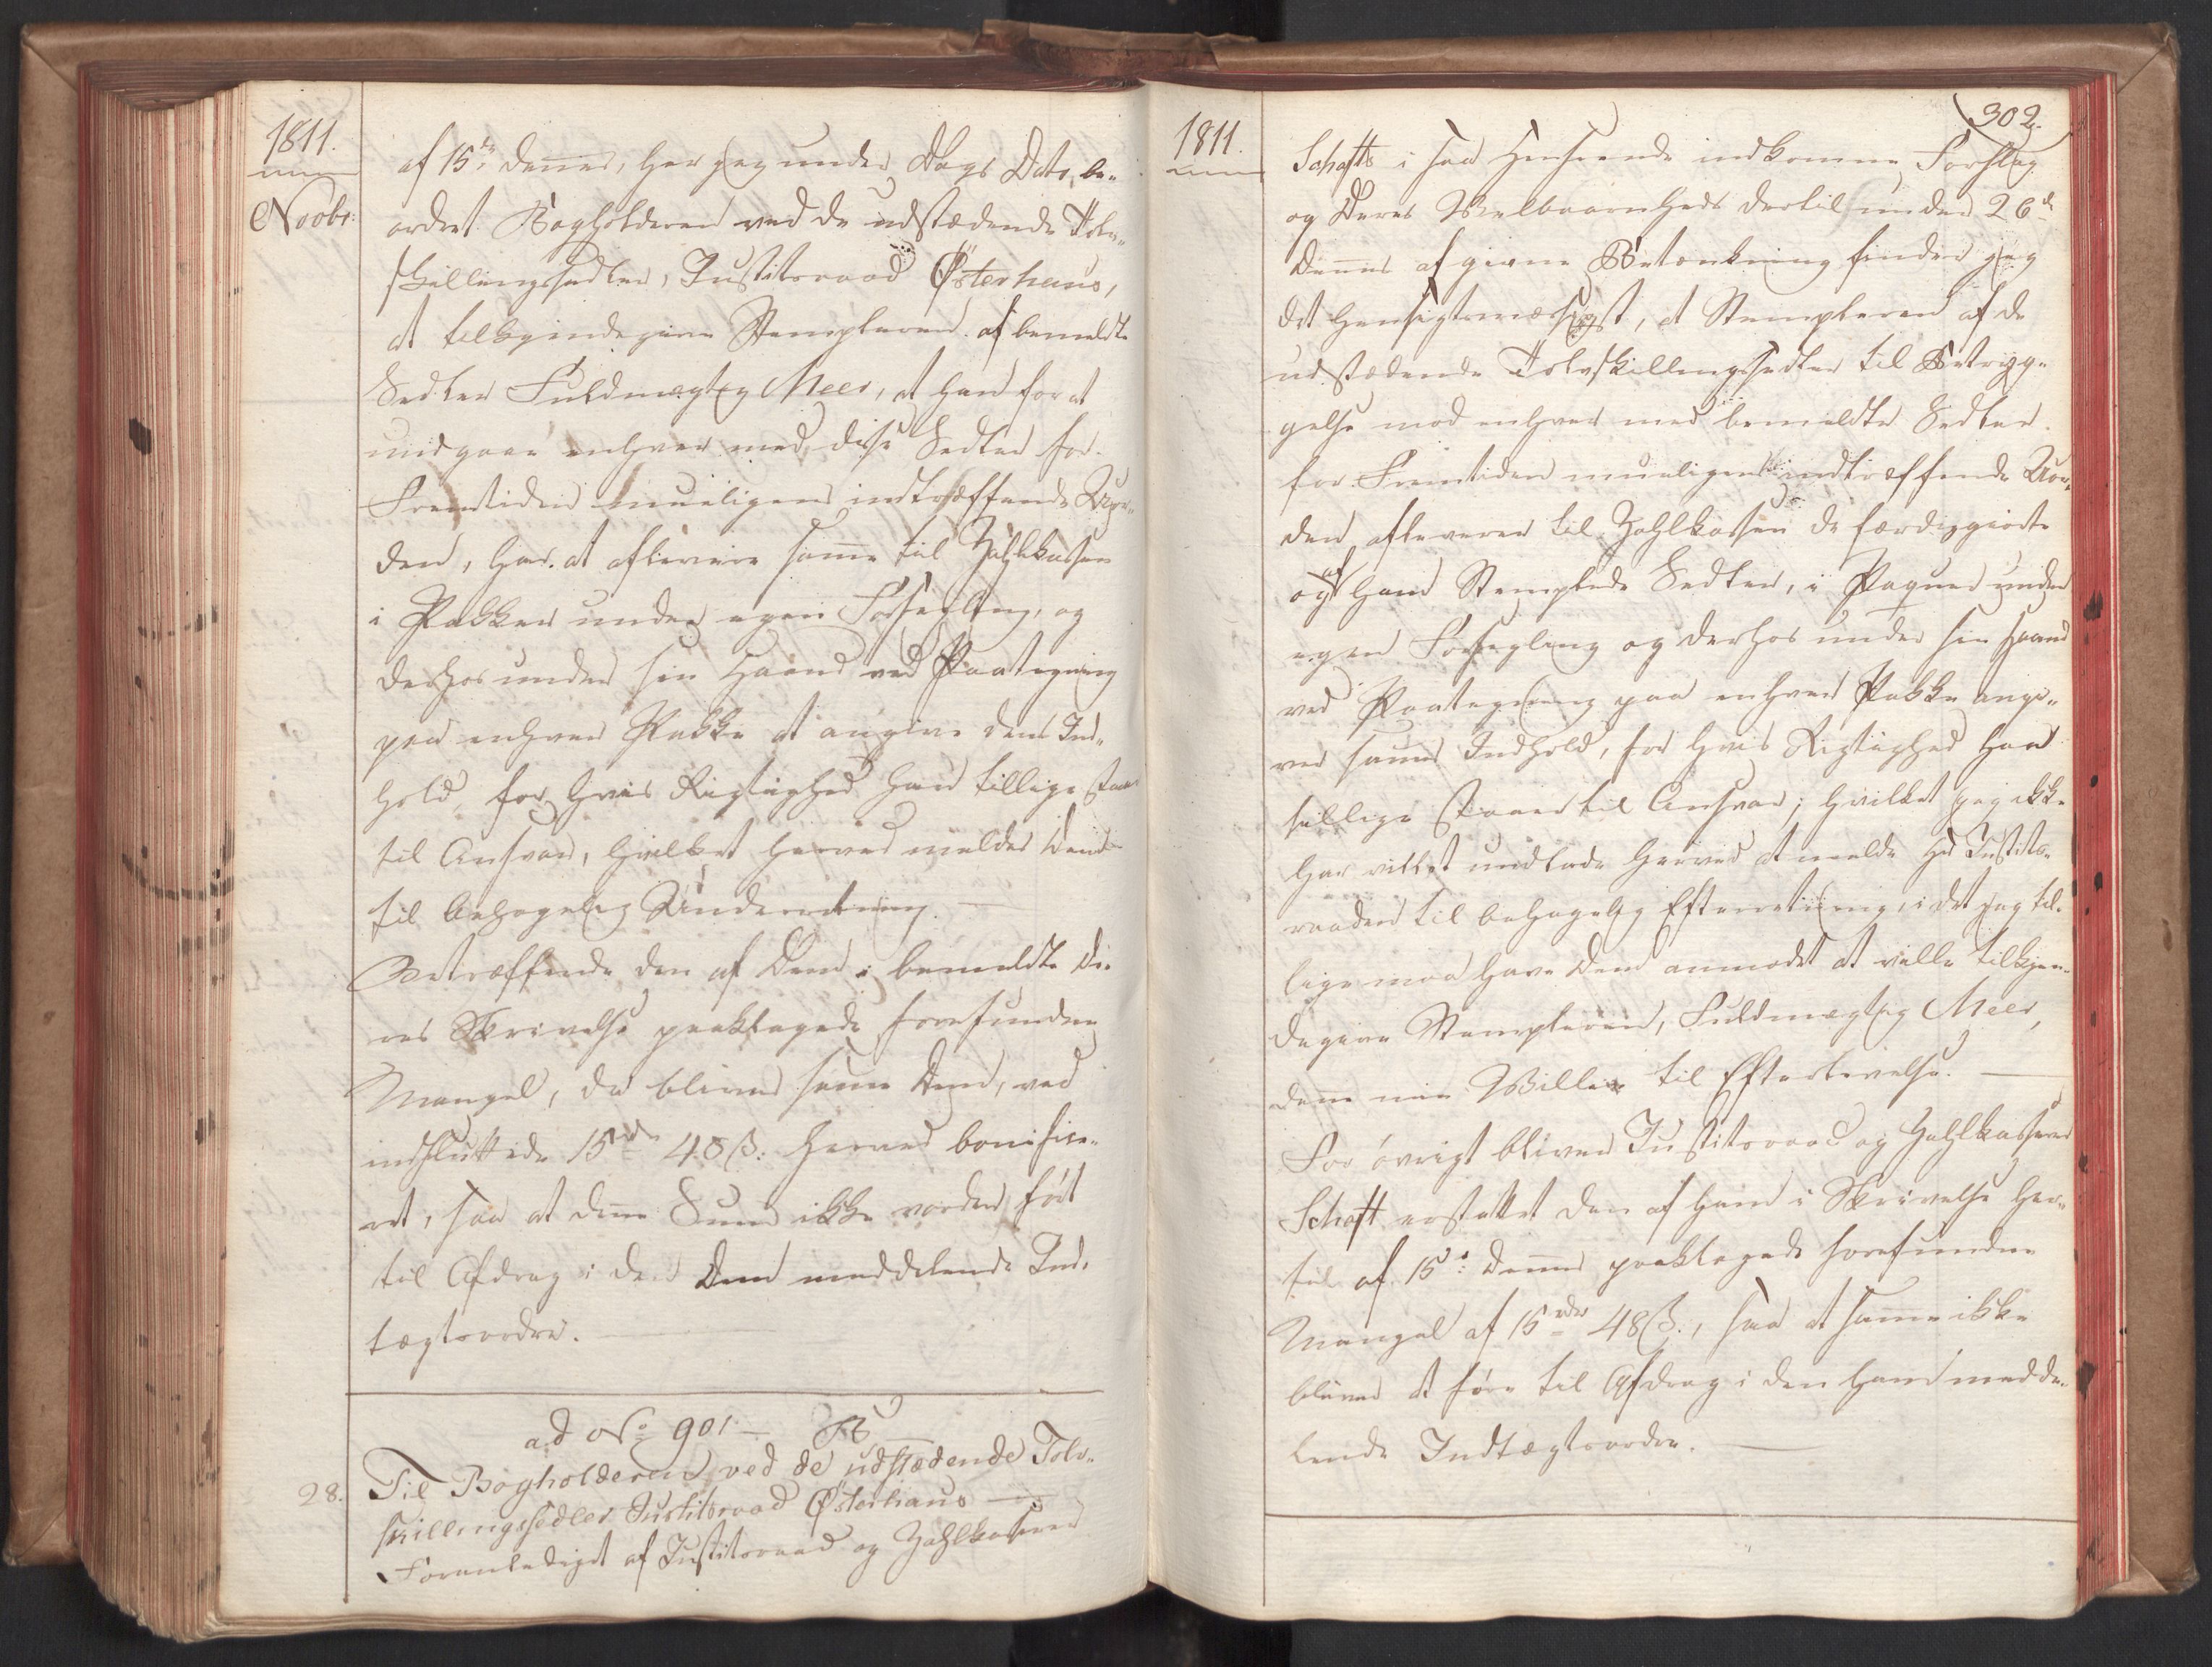 1811.
Novbr:
af 15de dennes, har jeg under Dags Dato, be-
ordret Bogholderen ved de udstædende Tolv-
skillingssedler, Justitsraad Østerhaus,
at tilkjendegive Stempleren af bemeldte
Sedler Fuldmægtig Meer, at han for at
undgaae enhver med disse Sedler for
Fremtiden mueligens indtræffende Uor-
den, har at aflevere samme til Zahlkassen
i Pakker under egen Forsegling, og
derhos under sin Haand ved Paategning
paa enhver Pakke at angive dens Ind-
hold, for hvis Rigtighed han tillige staaer
til Ansvar, hvilket herved meldes Dem
til behagelig Underretning.
Betræffende den af Dem i bemeldte De-
res Skrivelse paaklagede forefundne
Mangel, da bliver samme Dem, ved
indsluttede 15 rdr 48 ß. herved bonifice-
ret, saa at denne Sum ikke vorder fört
til Afdrag i den Dem meddelende Ind-
tægtsordre.
ad No 901
28.
Til Bogholderen ved de udstædende Tolv-
skillingssedler Justitsraad Østerhaus
Foranlediget af Justitsraad og Zahlkasserer
1811.
302.
Schafts i saa Henseende indkomne Forslag
og Deres Velbaarenheds dertil under 26de
Dennes afgivne Betænkning finder jeg
det hensigtsmæssigst, at Stempleren af de
udstædende Tolvskillingssedler til Betryg-
gelse mod enhver med bemeldte Sedler
for Fremtiden mueligens indtræffende Uor-
den afleverer til Zahlkassen de færdiggjorte
og af ham Stemplede Sedler, i Paquer under
egen Forsegling og derhos under sin Haand
ved Paategning paa enhver Pakke angi-
ver sammes Indhold, for hvis Rigtighed han
tillige staaer til Ansvar; hvilket jeg ikke
har villet undlade herved at melde Hr Justits-
raaden til behagelig Efterretning, i det jeg til-
lige maa have Dem anmodet at ville tilkjen-
degive Stempleren, Fuldmægtig Meer,
denne min Villie til Efterlevelse.
For övrigt bliver Justitsraad og Zahlkasserer
Schaft erstattet den af ham i Skrivelse her-
til af 15de dennes paaklagede forefundne
Mangel af 15 rdr 48 ß., saa at samme ikke
bliver at före til Afdrag i den ham medde-
lende Indtægtsordre.